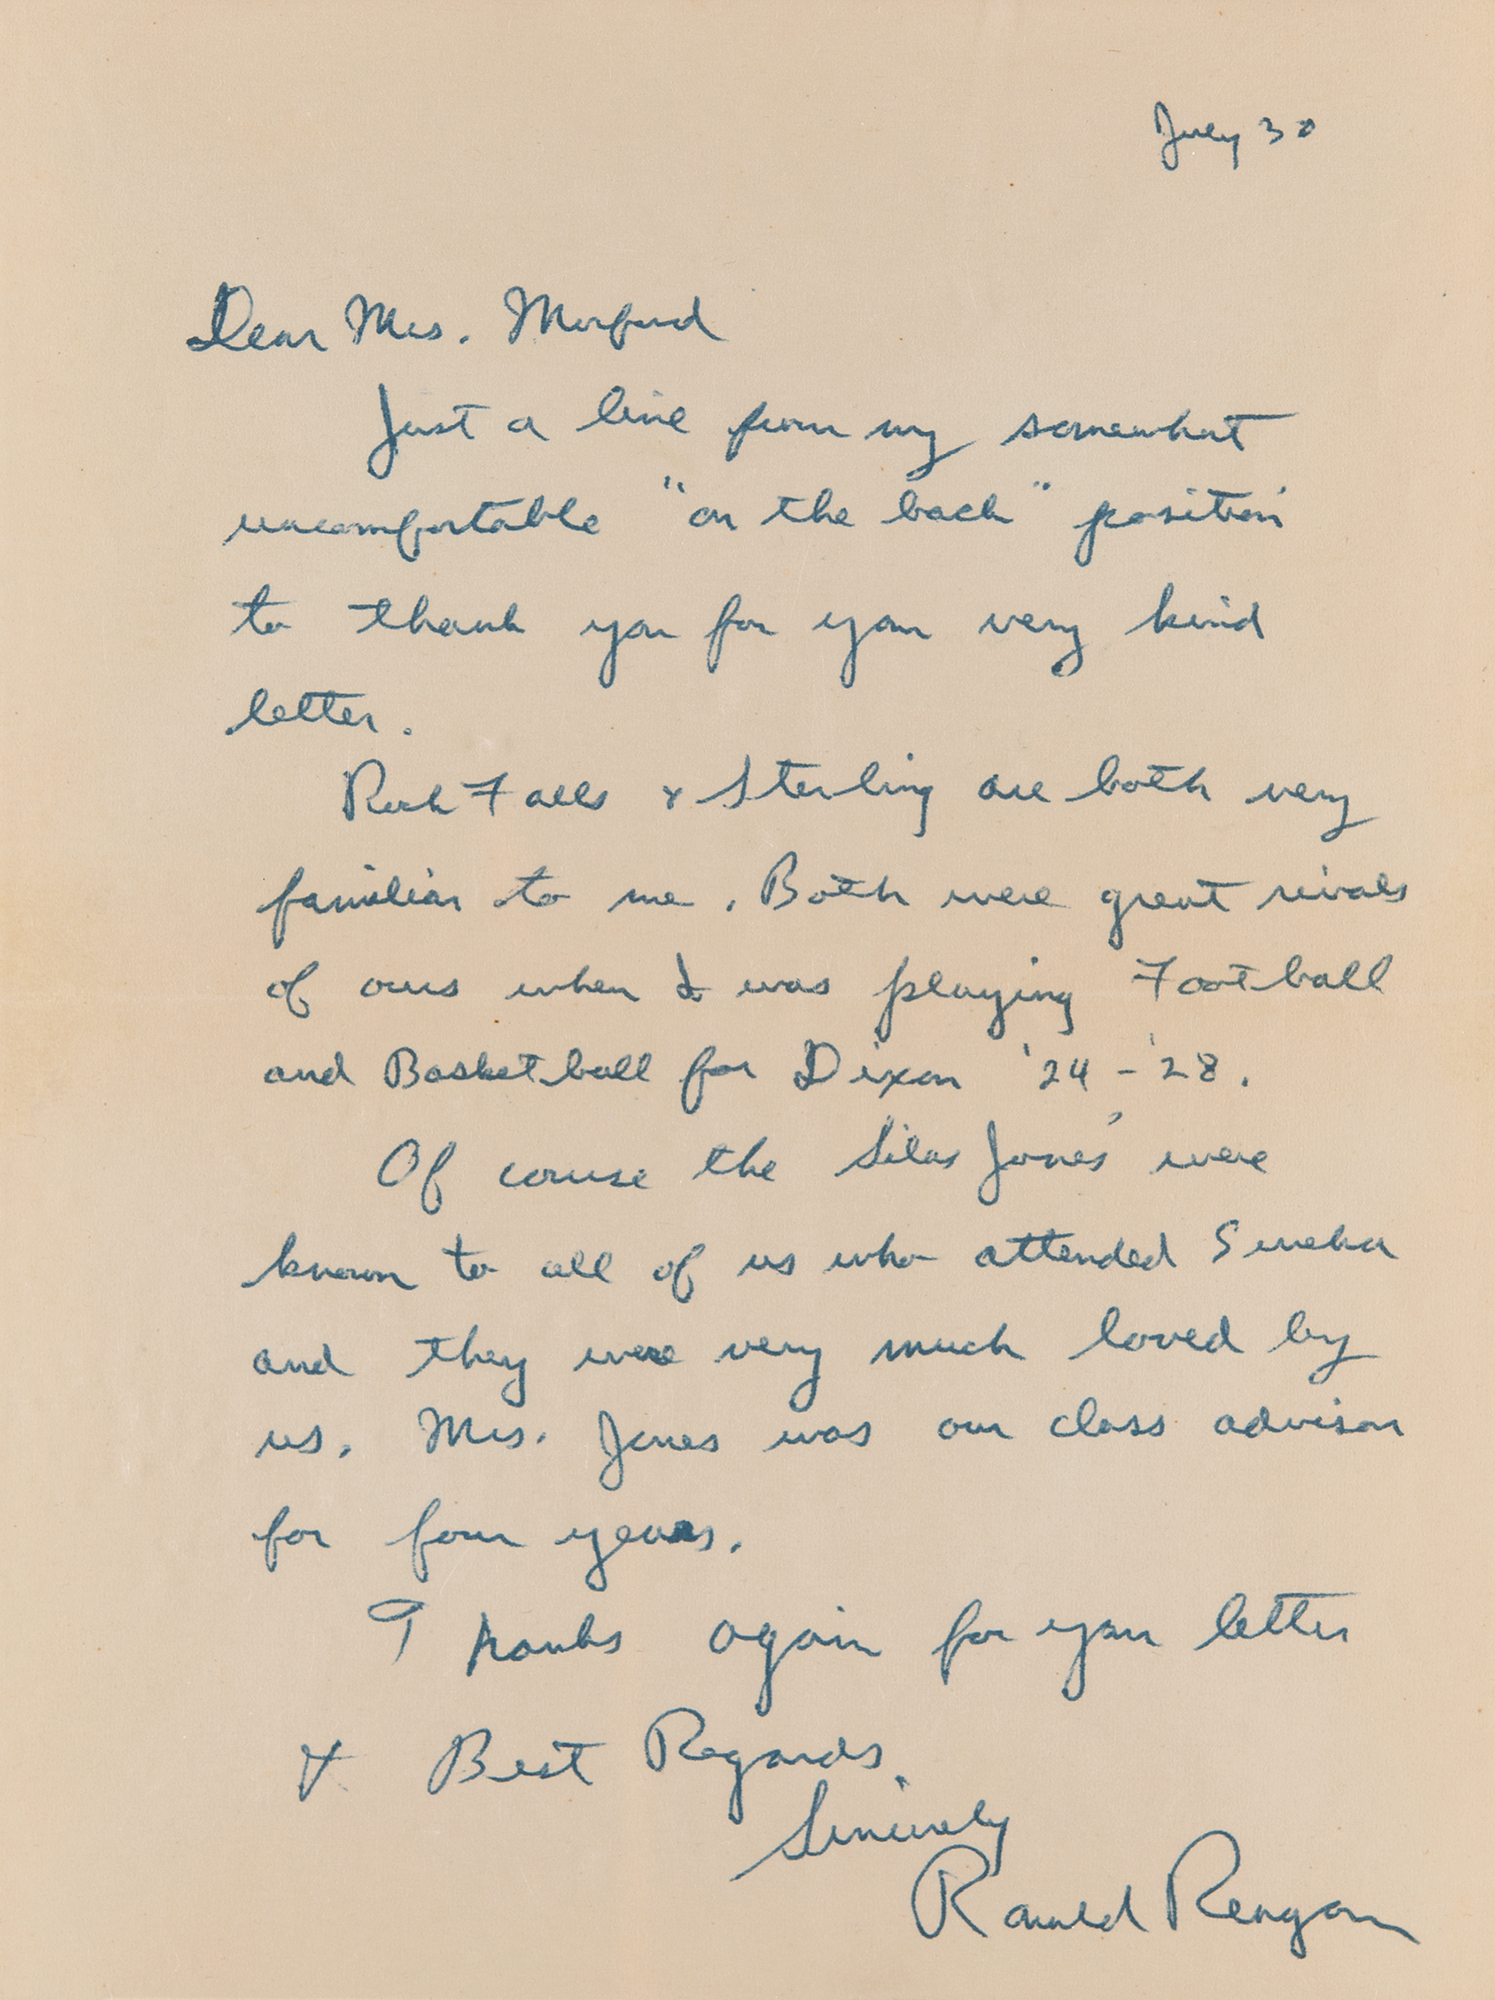 July 30
Dear Mrs. Morford
Just a line from my somewhat
uncomfortable "on the back" position
to thank you for your very kind
letter.
Rock Falls & Sterling are both very
familiar to me. Both were great rivals
of ours when I was playing Football
and Basketball for Dixon '24 - '28.
Of course the Silas Jones' were
known to all of us who attended Eureka
and they were very much loved by
us. Mrs. Jones was our class advisor
for four years.
Thanks again for your letter
& Best Regards,
Sincerely
Ronald Reagan